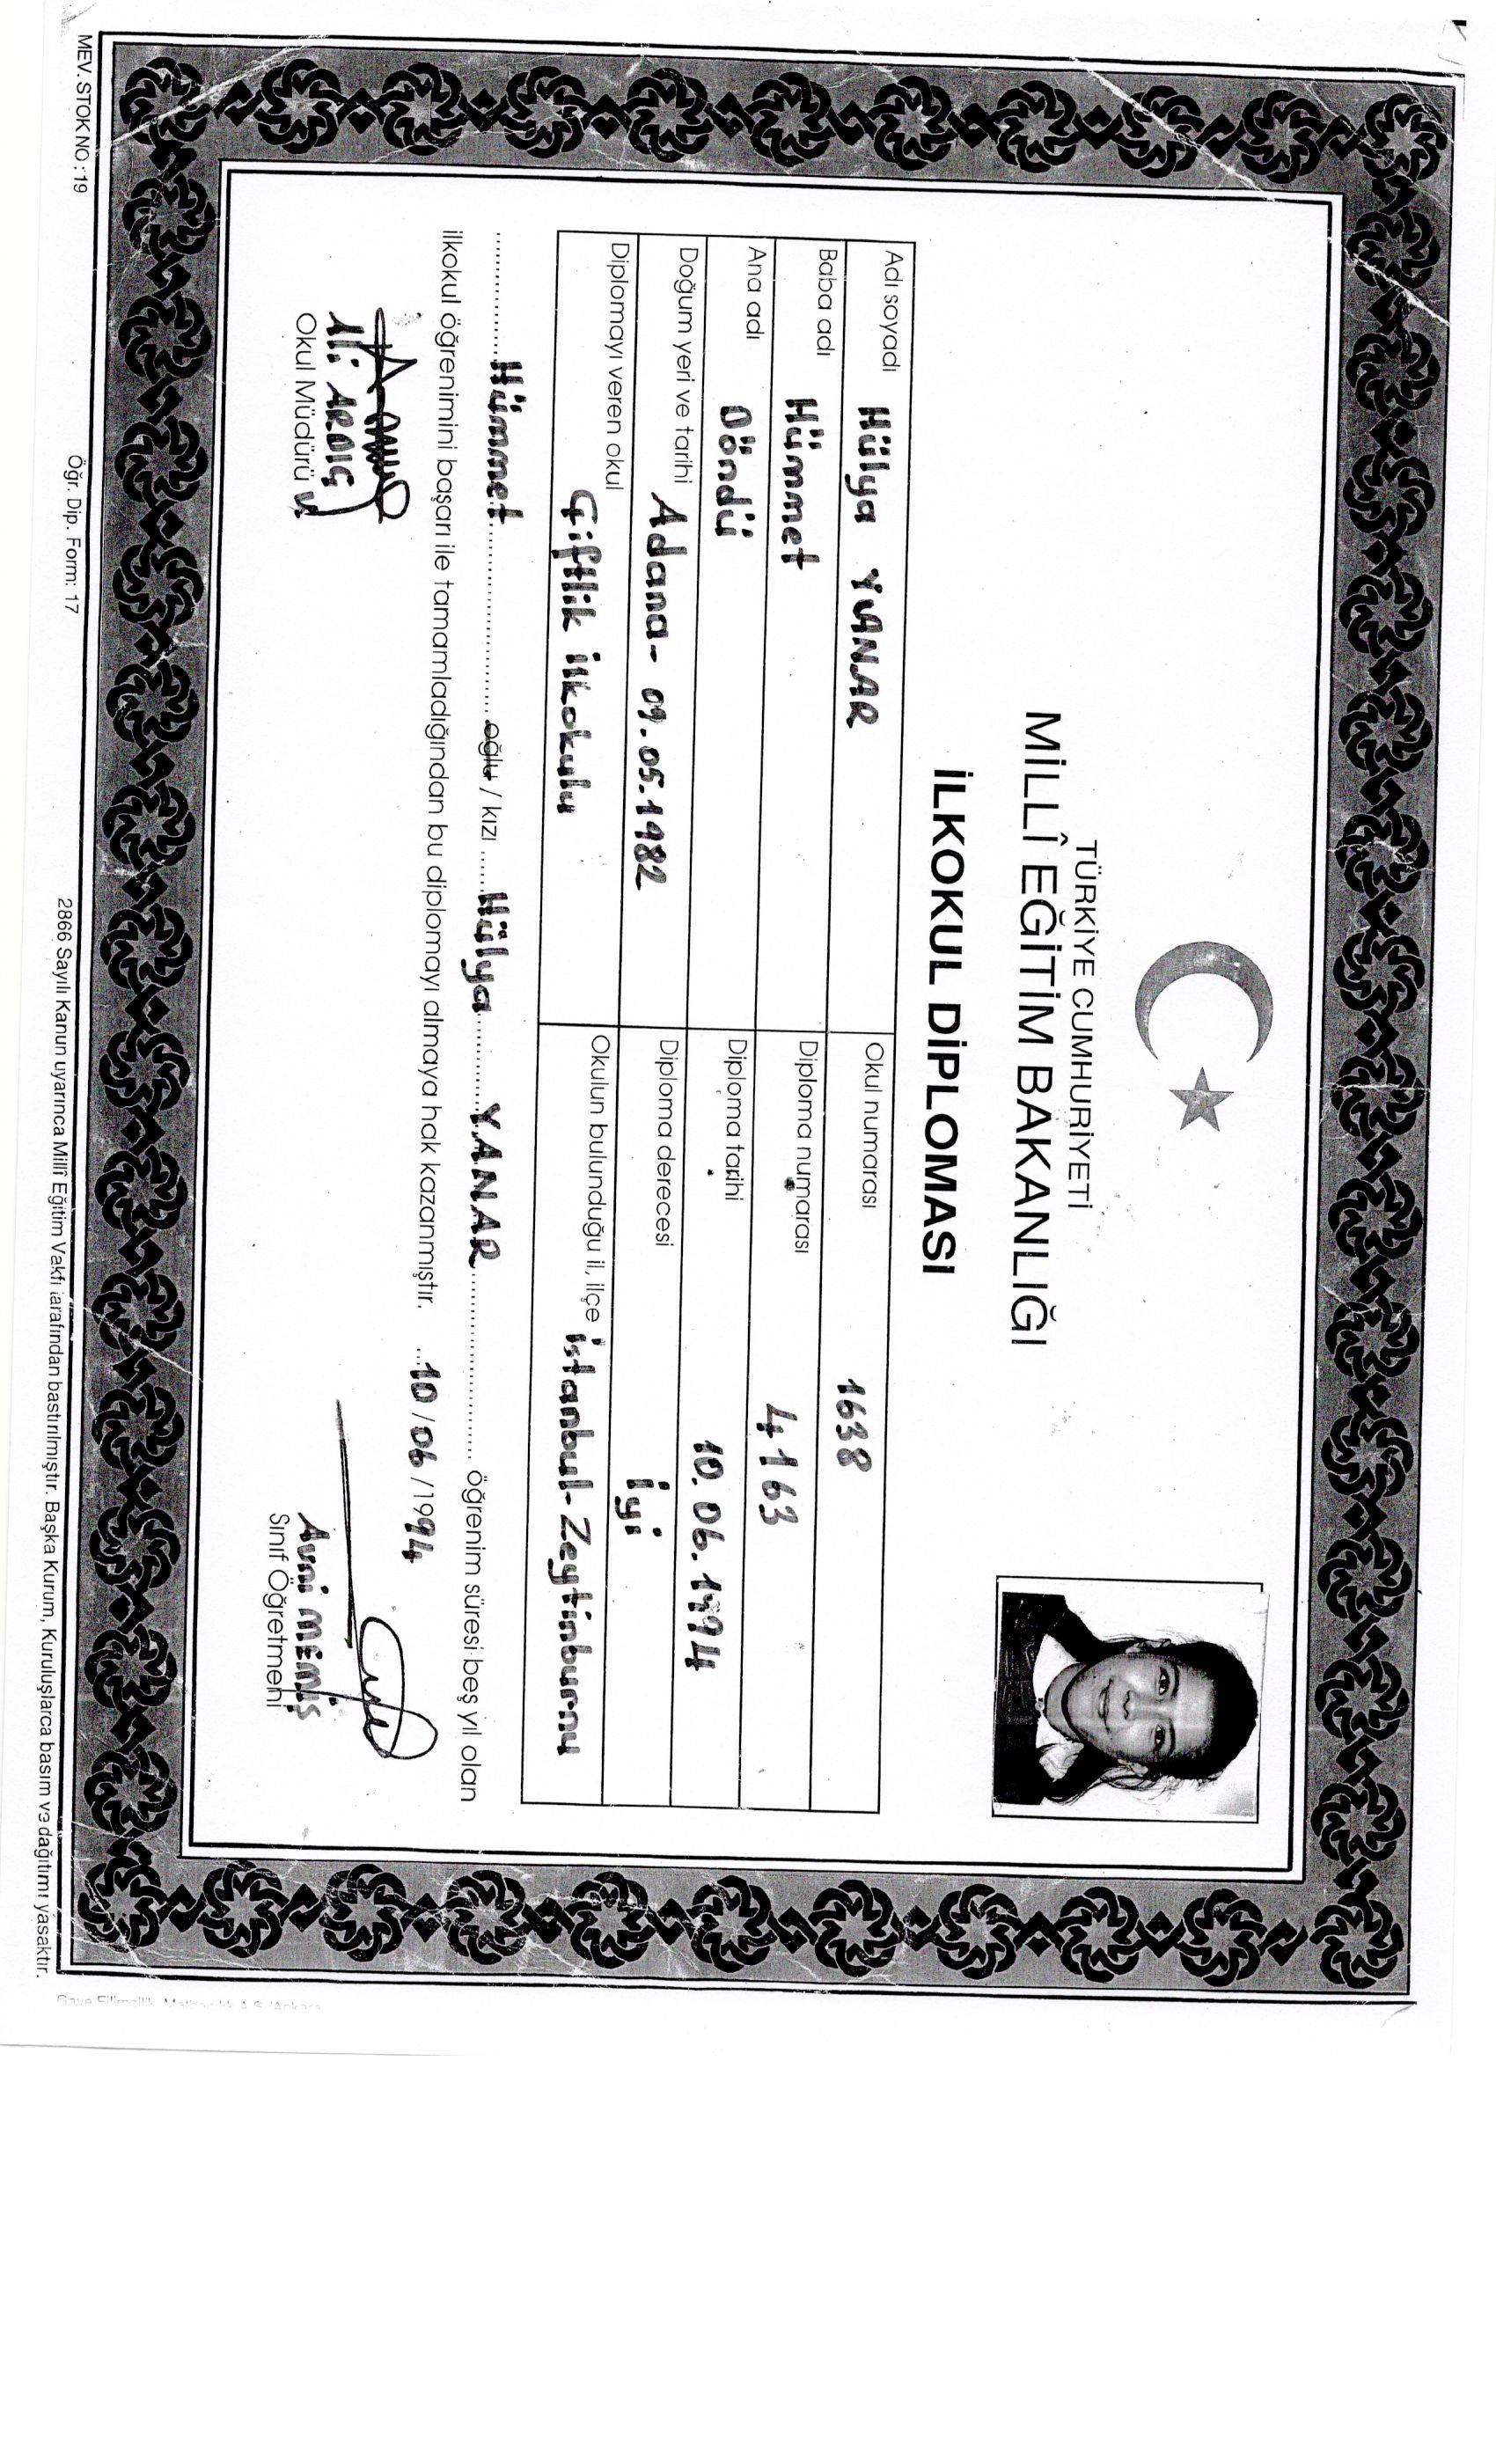 TÜRKİYE CUMHURİYETİ
MİLLÎ EĞİTİM BAKANLIĞI
İLKOKUL DİPLOMASI
Adı soyadı Hülya YANAR Okul numarası 1638
Baba adı Hümmet Diploma numarası 4163
Ana adı Döndü Diploma tarihi 10.06.1994
Doğum yeri ve tarihi Adana- 09.05.1982 Diploma derecesi iyi
Diplomayı veren okul Çiftlik ilkokulu Okulun bulunduğu il, ilçe istanbul-Zeytinburnu
Hümmet oğlu / kızı Hülya YANAR öğrenim süresi beş yıl olan
ilkokul öğrenimini başarı ile tamamladığından bu diplomayı almaya hak kazanmıştır. 10/06/1994
Ali ARDIÇ Avni MEMİŞ
Okul Müdürü V. Sınıf Öğretmeni
MEV. STOK NO: 19 Öğr. Dip. Form: 17 2866 Sayılı Kanun uyarınca Millî Eğitim Vakfı tarafından bastırılmıştır. Başka Kurum, Kuruluşlarca basım ve dağıtımı yasaktır.